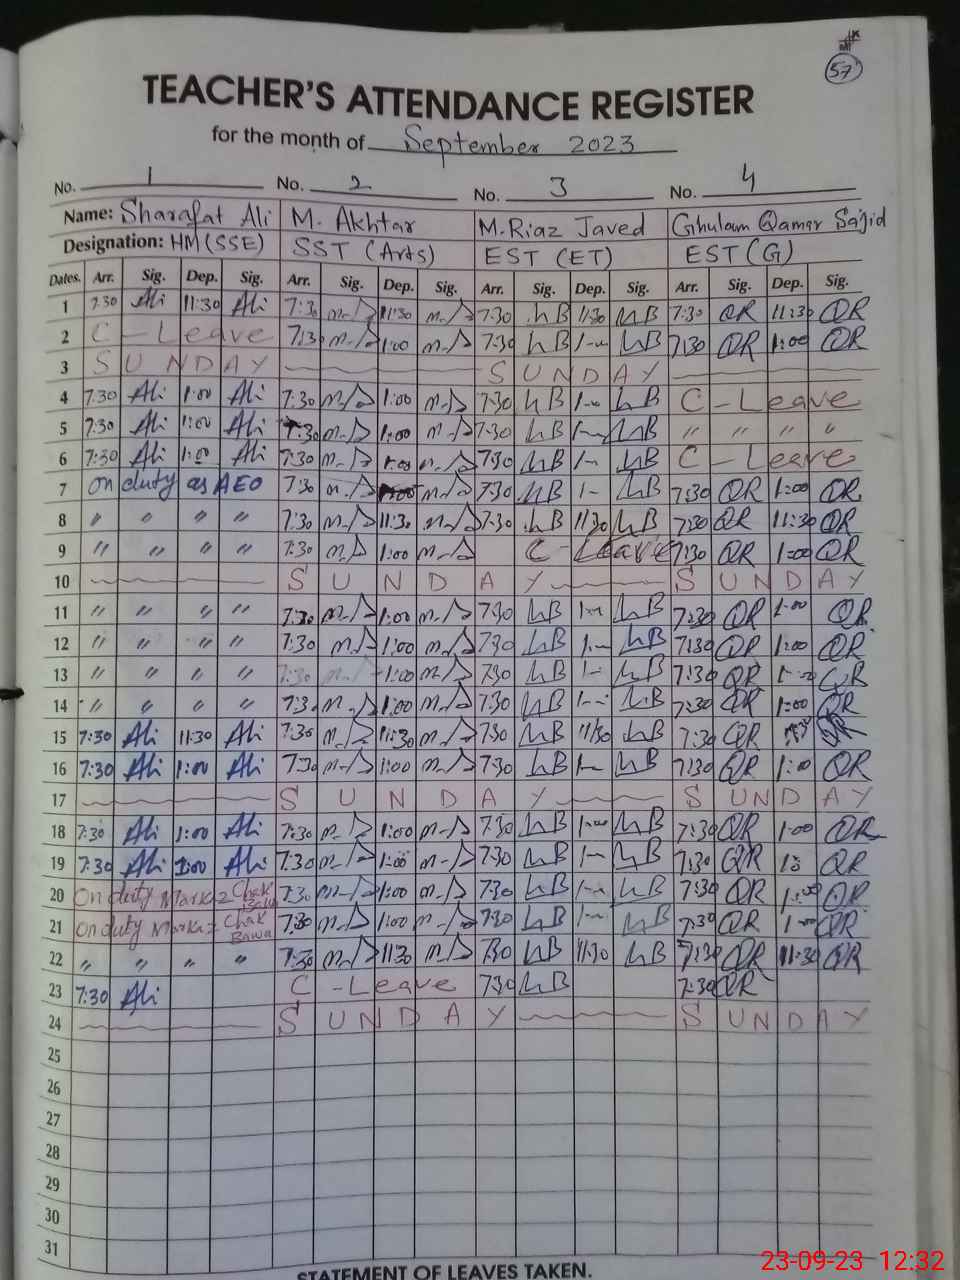 57
TEACHER'S ATTENDANCE REGISTER
for the month of September 2023
No. 1 No. 2 No. 3 No. 4
Name: Sharafat Ali M. Akhtar M.Riaz Javed Ghulam Qamar Sajid
Designation: HM (SSE) SST (Arts) EST (ET) EST (G)
Dates. Arr. Sig. Dep. Sig. Arr. Sig. Dep. Sig. Arr. Sig. Dep. Sig. Arr. Sig. Dep. Sig.
1 7:30 Ali 11:30 Ali 7:30 11:30 7:30 hB 11:30 hB 7:30 QR 11:30 QR
2 C - Leave 7:30 1:00 7:30 hB 1-- hB 7:30 QR 1:00 QR
3 S U N D A Y S U N D A Y
4 7:30 Ali 1:00 Ali 7:30 1:00 7:30 hB 1-- hB C - Leave
5 7:30 Ali 1:00 Ali 7:30 1:00 7:30 hB 1-- hB " " " "
6 7:30 Ali 1:00 Ali 7:30 1:00 7:30 hB 1- hB C - Leave
7 on duty as AEO 7:30 1:00 7:30 hB 1- hB 7:30 QR 1:00 QR
8 " " " " 7:30 11:30 7:30 hB 11:30 hB 7:30 QR 11:30 QR
9 " " " " 7:30 1:00 C - Leave 7:30 QR 1:00 QR
10 S U N D A Y S U N D A Y
11 " " " " 7:30 1:00 7:30 hB 1-- hB 7:30 QR 1:00 QR
12 " " " " 7:30 1:00 7:30 hB 1-- hB 7:30 QR 1:00 QR
13 " " " " 7:30 1:00 7:30 hB 1-- hB 7:30 QR 1:00 QR
14 " " " " 7:30 1:00 7:30 hB 1-- hB 7:30 QR 1:00 QR
15 7:30 Ali 11:30 Ali 7:30 11:30 7:30 hB 11:30 hB 7:30 QR QR
16 7:30 Ali 1:00 Ali 7:30 1:00 7:30 hB 1-- hB 7:30 QR 1:00 QR
17 S U N D A Y S U N D A Y
18 7:30 Ali 1:00 Ali 7:30 1:00 7:30 hB 1-- hB 7:30 QR 1:00 QR
19 7:30 Ali 1:00 Ali 7:30 1:00 7:30 hB 1-- hB 7:30 QR QR
20 On duty Markaz Chak Bawa 7:30 1:00 7:30 hB 1-- hB 7:30 QR 1:00 QR
21 On duty Markaz Chak Bawa 7:30 1:00 7:30 hB 1-- hB 7:30 QR QR
22 " " " " 7:30 11:30 7:30 hB 11:30 hB 7:30 QR 11:30 QR
23 7:30 Ali C - Leave 7:30 hB 7:30 QR
24 S U N D A Y S U N D A Y
25
26
27
28
29
30
31
STATEMENT OF LEAVES TAKEN.
23-09-23 12:32